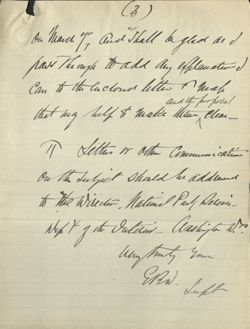 (3)
on March 9th, and shall be glad as I
pass through to add any explanation I
can to the enclosed letter & map
and the proposal
that may help to make them clear—
¶ Letters or other Communications
on the subject should be addressed
to The Director, National Park Service
Dept of the Interior - Washington D.C.
Very truly yours
Supt